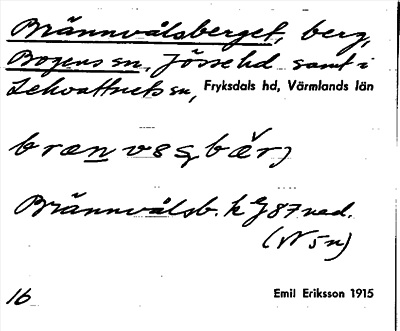 Brännvålsberget, berg,
Bogens sn, Jösse hd samt i
Lekvattnets sn, Fryksdals hd, Värmlands län
Brännvålsb. k
(N 5 n)
16 Emil Eriksson 1915